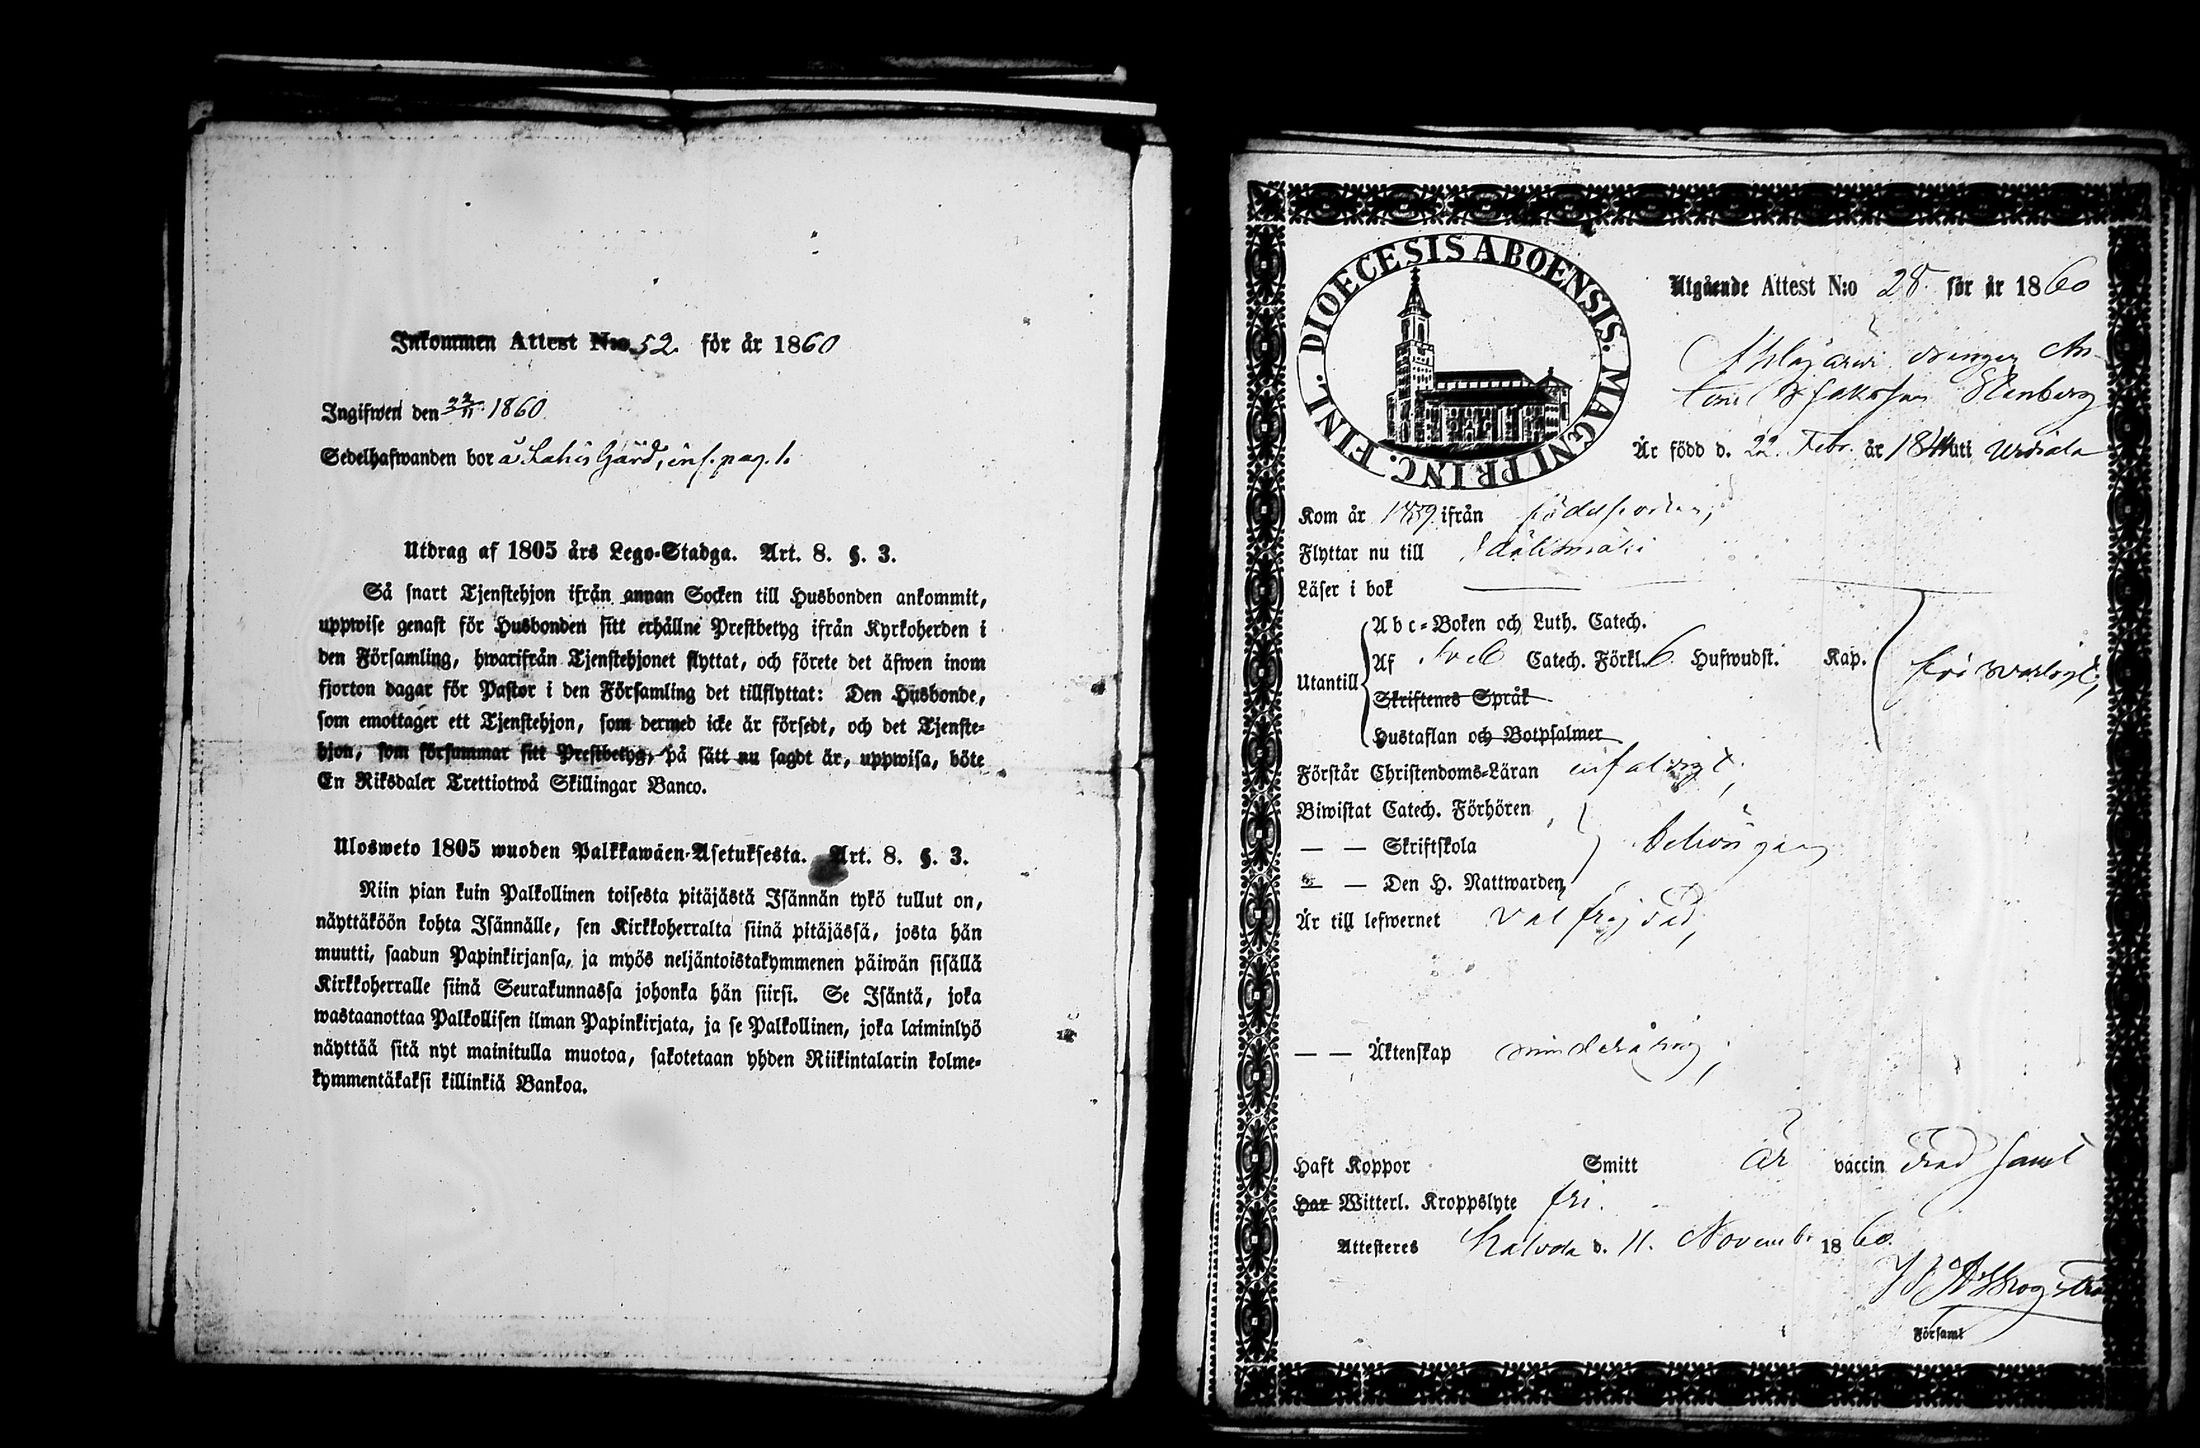 Inkommen Attest N:o 52. för år 1860
Ingifwen den 22/11 1860
Sedelhafwanden bor å Gård, inf. pag. 1.
Utdrag af 1805 års Lego-Stadga. Art. 8. §. 3.
Så snart Tjenstehjon ifrån annan Socken till Husbonden ankommit,
uppwise genast för Husbonden sitt erhållne Prestbetyg ifrån Kyrkoherden i
den Församling, hwarifrån Tjenstehjonet flyttat, och förete det äfwen inom
fjorton dagar för Pastor i den Församling det tillflyttat: Den Husbonde,
som emottager ett Tjenstehjon, som dermed icke är försedt, och det Tjenste-
hjon, som försummar sitt Prestbetyg, på sätt nu sagdt är, uppwisa, böte
En Riksdaler Trettiotwå Skillingar Banco.
Ulosweto 1805 wuoden Palkkawäen-Asetuksesta. Art. 8. §. 3.
Niin pian kuin Palkollinen toisesta pitäjästä Isännän tykö tullut on,
näyttäköön kohta Isännälle, sen Kirkkoherralta siinä pitäjässä, josta hän
muutti, saadun Papinkirjansa, ja myös neljäntoistakymmenen päiwän sisällä
Kirkkoherralle siinä Seurakunnassa johonka hän siirsi. Se Isäntä, joka
wastaanottaa Palkollisen ilman Papinkirjata, ja se Palkollinen, joka laiminlyö
näyttää sitä nyt mainitulla muotoa, sakotetaan yhden Riikintalarin kolme-
kymmentäkaksi killinkiä Bankoa.
DIOECESIS ABOENSIS. MAGNI PRINC. FINL.
Utgående Attest N:o 28. för år 1860
drengen An-
ton Jakobsson Stenberg
Är född d. 22. Febr. år 1844 uti Urdiala
Kom år 1859 ifrån födelseorten,
Flyttar nu till Sääksmäki
Läser i bok
Utantill
Abc-Boken och Luth. Catech.
Af Sveb Catech. Förkl. 6. Hufwudst. Kap.
Skriftenes Språk
Hustaflan och Botpsalmer
försvarligt,
Förstår Christendoms-Läran enfaldigt,
Biwistat Catech. Förhören
— — Skriftskola behörigen
— — Den H. Nattwarden
Är till lefwernet välfrejdad,
— — Äktenskap minderårig,
Haft Koppor Smitt är vaccinerad samt
Har Witterl. Kroppslyte fri.
Attesteres Kalvola d. 11. Novemb. 1860.
Församl